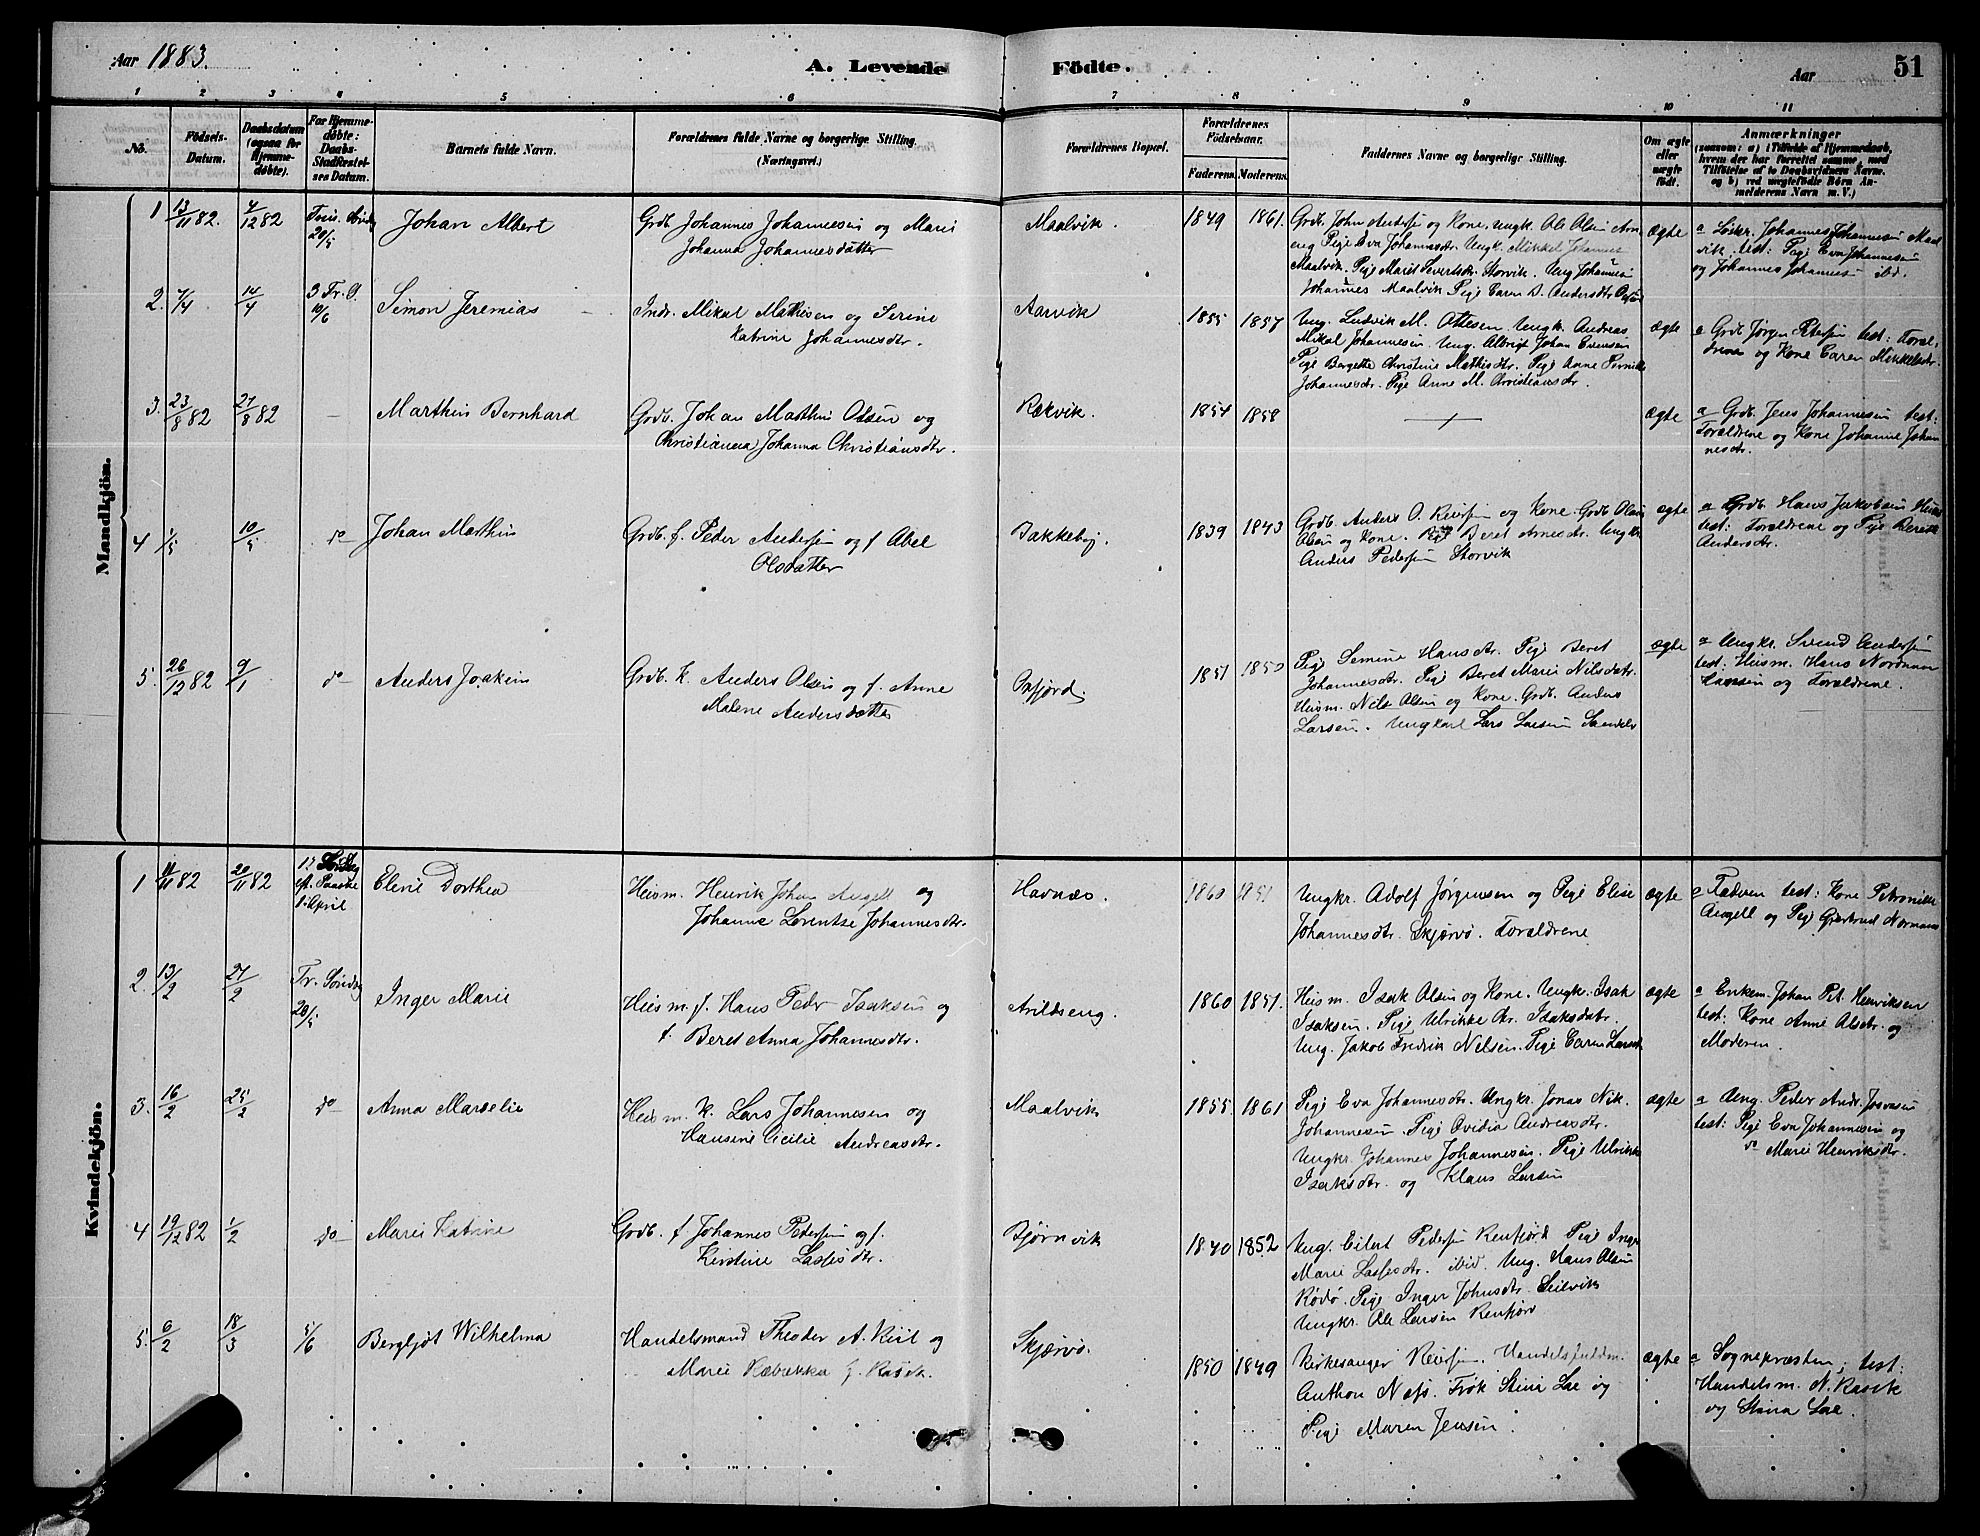 Aar 1883.
A. Levende Födte.
Aar
51
1 2 3 4 5 6 7 8 9 10 11
No.
Födsels-Datum.
Daabsdatum (ogsaa for Hjemmedøbte).
For Hjemmedøbte: Daabs-Stadfæstelses Datum.
Barnets fulde Navn.
Forældrenes fulde Navne og borgerlige Stilling. (Næringsvei.)
Forældrenes Bopæl.
Forældrenes Födselsaar.
Faderens. Moderens.
Faddernes Navne og borgerlige Stilling.
Om ægte eller uægte födt.
Anmærkninger
(saasom: a) i Tilfælde af Hjemmedaab, hvem der har forrettet samme, med Tilføielse af to Daabsvidners Navne. og b) ved uægtefödte Börn Anmelderens Navn m. V.)
Mandkjön.
1 13/11 82. 4/12 82 20/5 Johan Albert
Grdb. Johannes Johannesen og Marie
Johanna Johannesdatter
Maalvik. 1849 1861.
Grdb. John Andersen og Kone, Ungk. Ole Olsen
Pige Eva Johannesdr. Ungk. Mikkel Johannes
Maalvik. Pige Marit Sivertsdr. Storvik. Ung Johannes
Johannes Maalvik Pige Caren D. Andersdtr
ægte
a Johannes Johannesen Maalvik. test: Pige Eva Johannesen
og Johannes Johannes ibd.
2. 7/4 14/4 3 Tr. S. 10/6 Simon Jeremias
Indr. Mikal Mathisen og Serine
Katrine Johannesdtr.
Aarvik 1855 1857
Ung. Ludvik M. Ottesen. Ungk. Andreas
Mikal Johannesen. Ung. Albrigt Johan Evensen
Pige Bergette Christine Mathisdtr. Pige Anne Pernille
Johannesdtr. Pige Anne M. Christiansdtr.
ægte
a Grdb Jørgen Petersen test: Forældrene og Kone Caren Mikkelsdtr.
3. 23/8 82 27/8 82 – Marthin Bernhard
Grdb. Johan Marthin Olsen og
Christianna Johanna Christiansdtr.
Rækvik. 1854 1858
ægte
a Grdb. Jens Johannesen test:
Forældrene og Kone Johanne Johannesdtr.
4 1/5 10/5 do Johan Marthin
Grdb. f. Peder Andersen og f Abel
Olsdatter
Bakkeby. 1839 1843
Grdb. Anders O. Reiersen og Kone. Grdb Olaus
Olsen og Kone. Pige Beret Arnesdtr. Ungk.
Anders Pedersen Storvik
ægte
a Grdb Hans Jakobsen
test: Forældrene og Pige Berette
Andersdtr.
5. 26/12 82 9/1 do Anders Joakim
Grdb. K. Anders Olsen og f. Anne
Malene Andersdatter
Oxfjord. 1851 1850
Pige Semine Hansdtr. Pige Beret
Johannesdtr. Pige Beret Marie Nilsdatr.
Husm. Nils Olsen og Kone. Grdb. Anders
Larsen. Ungkarl Lars Larsen
ægte
a Ungkr. Svend Andersen
test: Husm. Hans Nordman
Hansen og Forældrene.
Kvindekjön.
1 11/11 82 20/11 82 eft. Paaske 1 April Elene Dorthea
Husm. Henrik Johan Angell og
Johanne Lorentse Johannesdtr.
Havnæs. 1860 1851
Ungkr. Adolf Jørgensen og Pige Elise
Johannesdtr. Skjærvø. Forældrene
ægte
a Faderen test: Kone Petronille
Angell og Pige Gjertrud Normann
2. 13/2 27/2 Tr. Søndag 20/5 Inger Marie
Husm. f. Hans Peder Isaksen og
f. Beret Anna Johannesdtr.
Arildseng. 1860 1851.
Husm. Isak Olsen og Kone. Ungk. Isak
Isaksen. Pige Ulrikke Kr. Isaksdatr.
Ung. Jakob Fredrik Nelsen. Pige Caren
ægte
a Enkem. Johan Pet. Henriksen
test: Kone Anne Olsdtr. og
Moderen.
3. 16/2 25/2 do Anna Marselie
Husm. K. Lars Johannesen og
Hansine Cicilie Andreasdtr.
Maalvik 1855. 1861
Pige Eva Johannesdtr. Ungkr. Jonas Nik.
Johannesen. Pige Ovidia Andreasdtr.
Ungkr. Johannes Johannesen. Pige Ulrikke
Isaksdtr. og Klaus Larsen
ægte
a Ung. Peder Andr.
test: Pige Eva Johannesen og
do Marie Henriksdtr.
4 19/12 82 1/2 do Marie Katrine
Grdb. f. Johannes Pedersen og f.
Kirstine Lassesdtr.
Bjørnvik 1840 1852
Ung. Eilert Pedersen Reinfjord Pige Inger
Marie Lassesdtr. ibid. Ung. Hans Olsen
Rödö. Pige Inger Johnsdtr. Seilvik
Ungkr. Ole Larsen Reinfjord
5. 6/2 18/3 5/6 Bergljot Wilhelma
Handelsmand Theodor A. Kiil og
Marie Rebekka f. Rasch.
Skjærvø. 1850 1849
Kirkesanger Reiersen. Handelsfuldm.
Anthon Næss. Frøk Stina Lae og
Pige Maren Jensen.
ægte
a Sognepræsten; test:
Handelsm. N. Rasch
og Stina Lae.